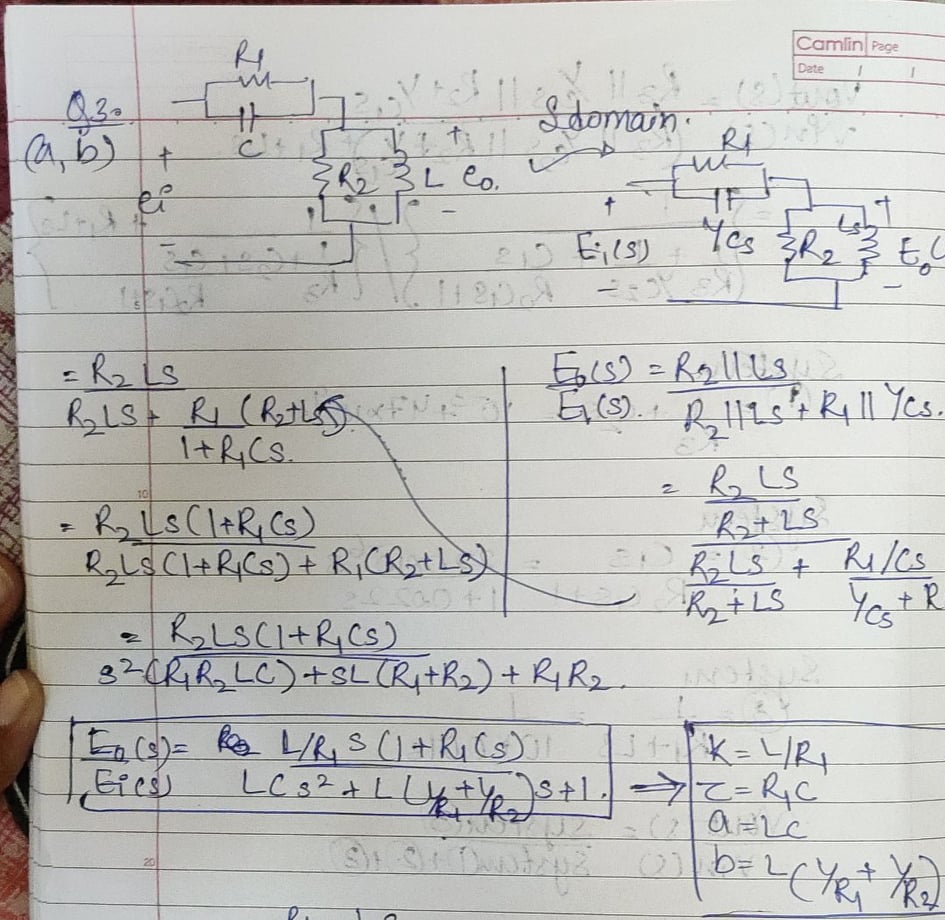 Camlin Page
Date / /
Q3.
(a, b)
R1
C
+
ei
-
R2
L
+
eo.
-
S domain.
R1
1/Cs
+
Ei(s)
-
R2
Ls
+
Eo(
-
= R2 LS / R2LS + R1 (R2+LS) / 1+R1CS.
Eo(s) / Ei(s). = R2||LS / R2||LS + R1||1/Cs.
= R2 LS / R2+LS / R2LS / R2+LS + R1/Cs / 1/Cs + R
10
= R2LS(1+R1CS) / R2LS(1+R1CS) + R1(R2+LS)
= R2LS(1+R1CS) / s²(R1R2LC) + SL(R1+R2) + R1R2.
Eo(s) / Ei(s) = L/R1 S (1+R1CS) / LCs² + L(1/R1+1/R2)S+1. ⇒
K = L/R1
τ = R1C
a = LC
b = L(1/R1 + 1/R2)
20